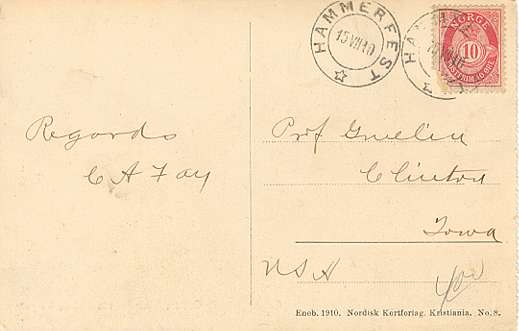 HAMMERFEST
15 VII 10
NORGE
10
Regards
C A Fay
Prof Gmelin
Clinton
Iowa
USA
Eneb. 1910. Nordisk Kortforlag. Kristiania. No. 8.